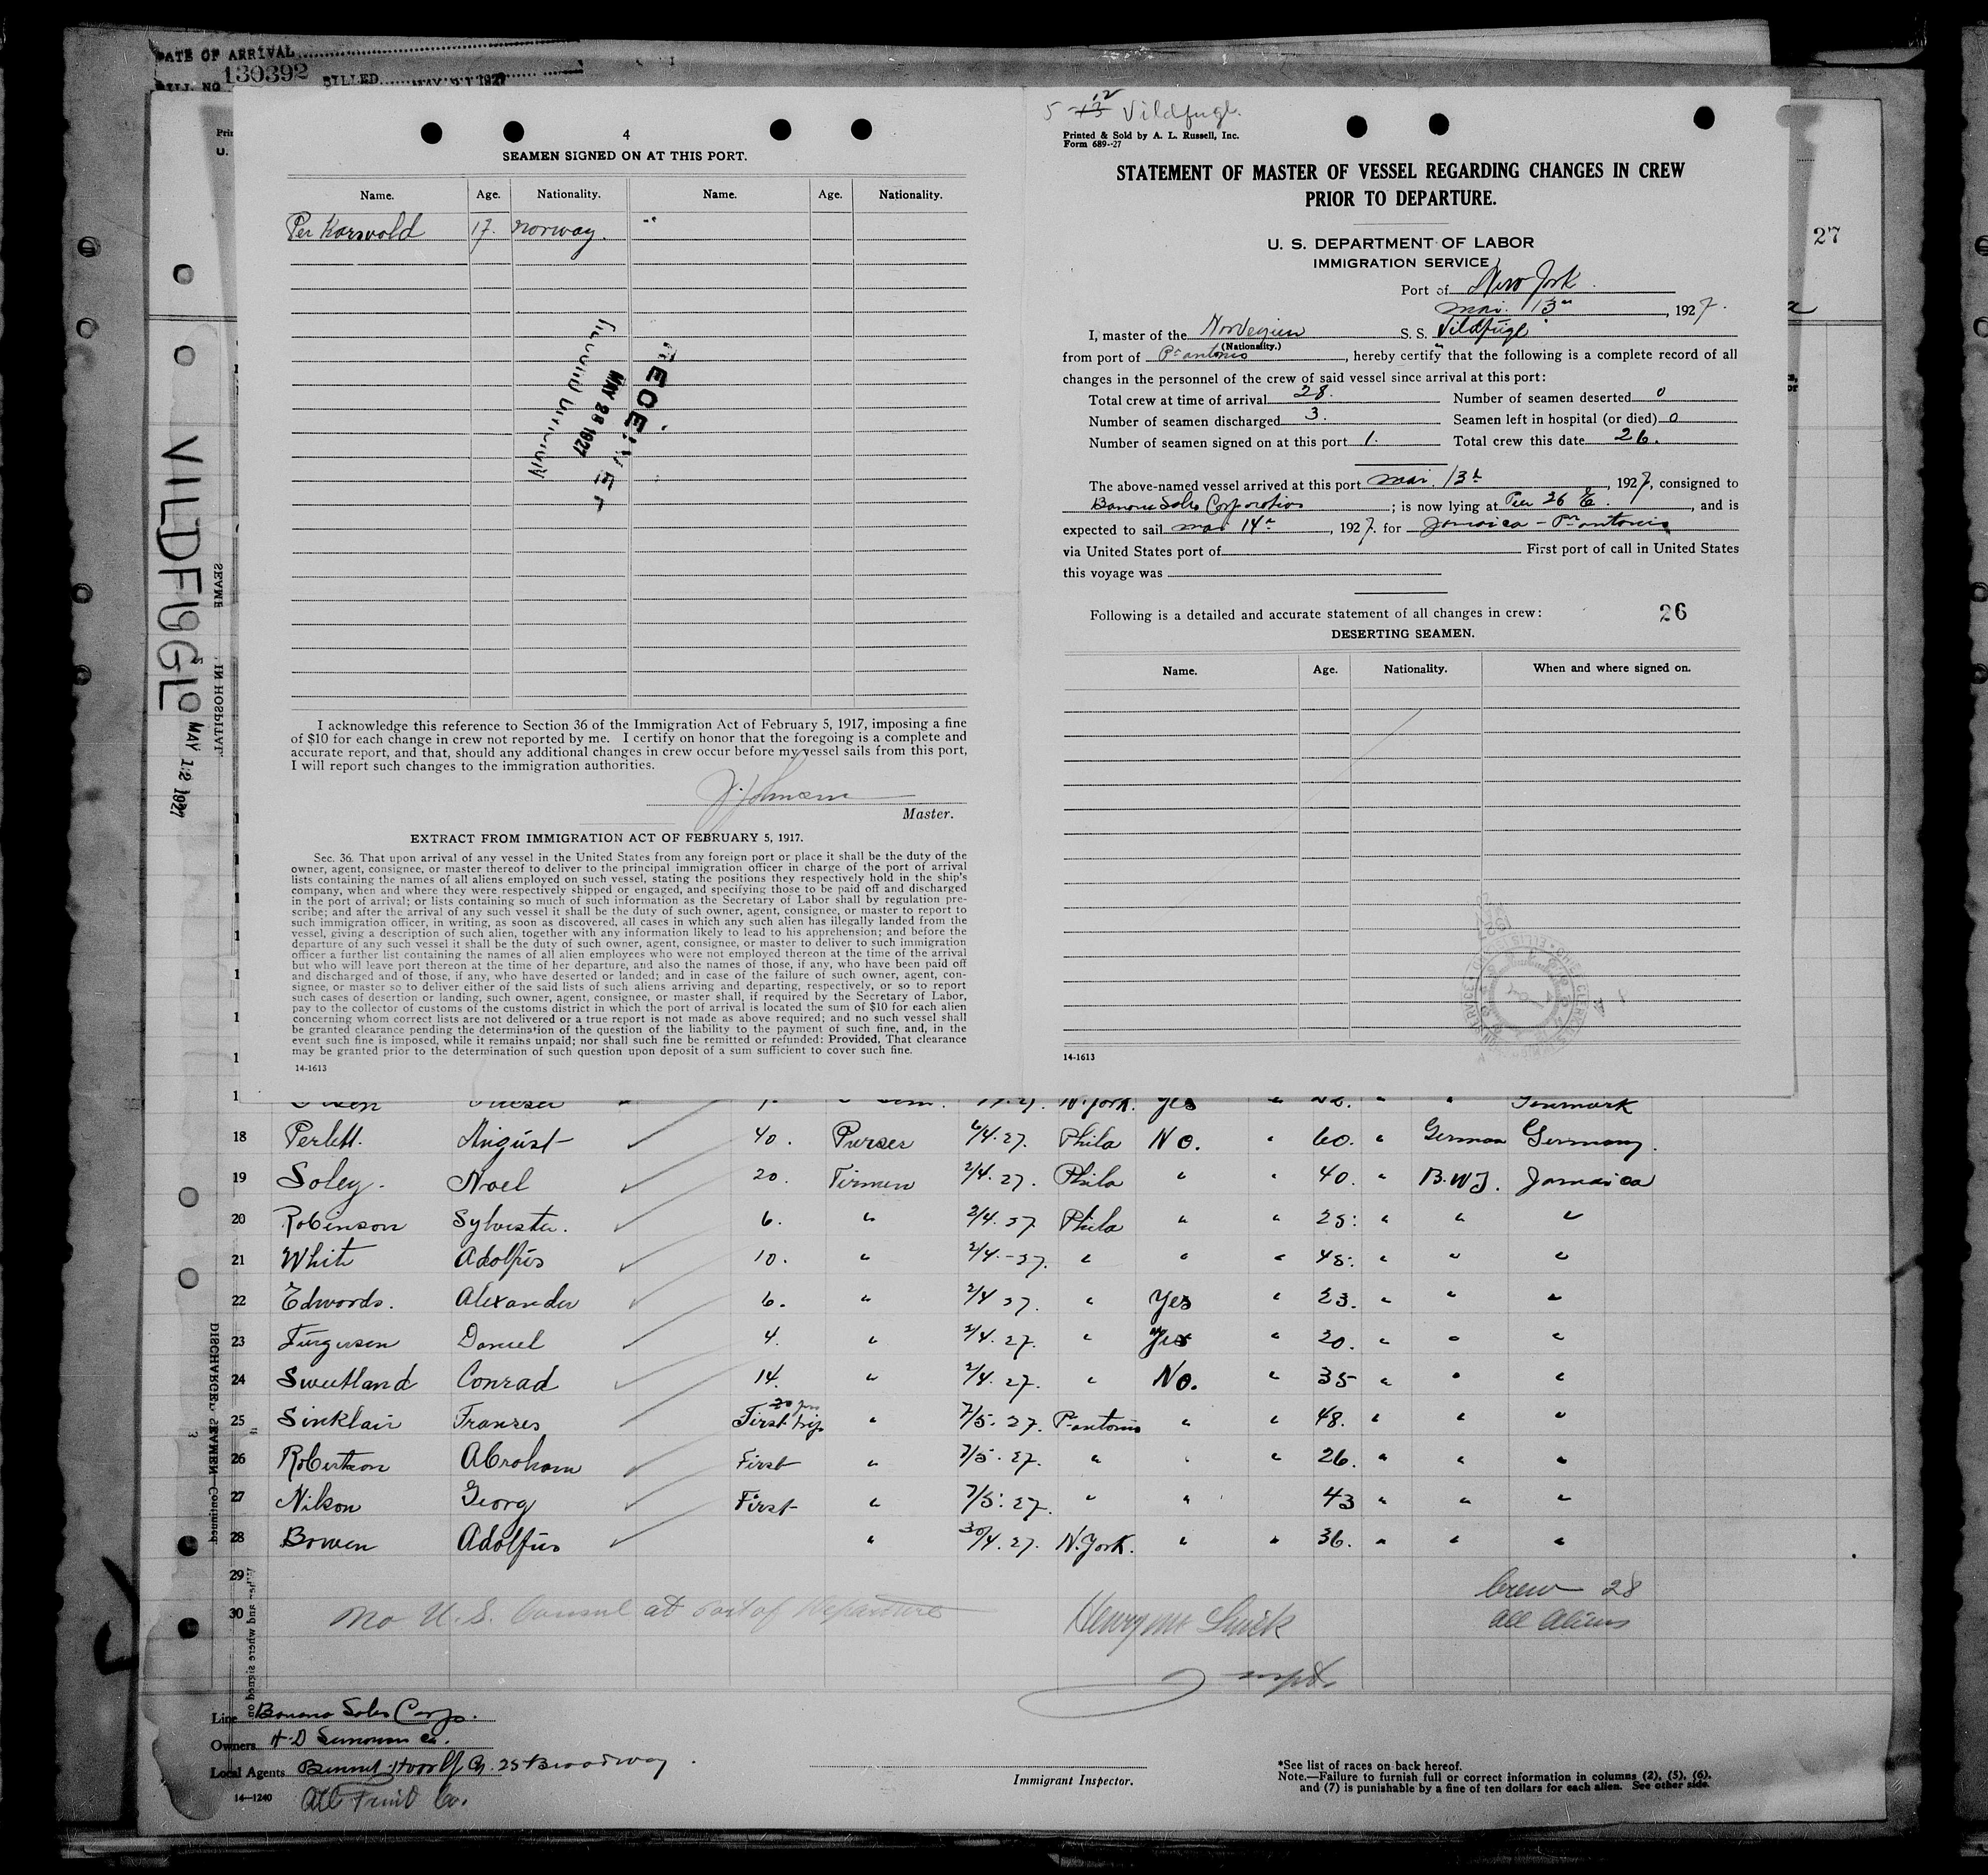 DATE OF ARRIVAL
BILL NO. 130392 BILLED MAY 21 1927
4
SEAMEN SIGNED ON AT THIS PORT.
Name. Age. Nationality. Name. Age. Nationality.
Per Korsvold 17. Norway.
RECEIVE
MAY 28 1927
I acknowledge this reference to Section 36 of the Immigration Act of February 5, 1917, imposing a fine
of $10 for each change in crew not reported by me. I certify on honor that the foregoing is a complete and
accurate report, and that, should any additional changes in crew occur before my vessel sails from this port,
I will report such changes to the immigration authorities.
Master.
EXTRACT FROM IMMIGRATION ACT OF FEBRUARY 5, 1917.
Sec. 36. That upon arrival of any vessel in the United States from any foreign port or place it shall be the duty of the
owner, agent, consignee, or master thereof to deliver to the principal immigration officer in charge of the port of arrival
lists containing the names of all aliens employed on such vessel, stating the positions they respectively hold in the ship's
company, when and where they were respectively shipped or engaged, and specifying those to be paid off and discharged
in the port of arrival; or lists containing so much of such information as the Secretary of Labor shall by regulation pre-
scribe; and after the arrival of any such vessel it shall be the duty of such owner, agent, consignee, or master to report to
such immigration officer, in writing, as soon as discovered, all cases in which any such alien has illegally landed from the
vessel, giving a description of such alien, together with any information likely to lead to his apprehension; and before the
departure of any such vessel it shall be the duty of such owner, agent, consignee, or master to deliver to such immigration
officer a further list containing the names of all alien employees who were not employed thereon at the time of the arrival
but who will leave port thereon at the time of her departure, and also the names of those, if any, who have been paid off
and discharged and of those, if any, who have deserted or landed; and in case of the failure of such owner, agent, con-
signee, or master so to deliver either of the said lists of such aliens arriving and departing, respectively, or so to report
such cases of desertion or landing, such owner, agent, consignee, or master shall, if required by the Secretary of Labor,
pay to the collector of customs of the customs district in which the port of arrival is located the sum of $10 for each alien
concerning whom correct lists are not delivered or a true report is not made as above required; and no such vessel shall
be granted clearance pending the determination of the question of the liability to the payment of such fine, and, in the
event such fine is imposed, while it remains unpaid; nor shall such fine be remitted or refunded: Provided, That clearance
may be granted prior to the determination of such question upon deposit of a sum sufficient to cover such fine.
14-1613
5 13 12 Vildfugl.
Printed & Sold by A. L. Russell, Inc.
Form 689--27
STATEMENT OF MASTER OF VESSEL REGARDING CHANGES IN CREW
PRIOR TO DEPARTURE.
U. S. DEPARTMENT OF LABOR
IMMIGRATION SERVICE
Port of New York
mai. 13th, 1927.
I, master of the Norvegien S. S. Vildfugl
(Nationality.)
from port of Pt antonio, hereby certify that the following is a complete record of all
changes in the personnel of the crew of said vessel since arrival at this port:
Total crew at time of arrival 28. Number of seamen deserted 0
Number of seamen discharged 3. Seamen left in hospital (or died) 0
Number of seamen signed on at this port 1. Total crew this date 26.
The above-named vessel arrived at this port mai. 13th, 1927, consigned to
Banana Sales Corporation; is now lying at Pier 26 E., and is
expected to sail mai 14th, 1927. for Jamaica - Pt antonio
via United States port of First port of call in United States
this voyage was
Following is a detailed and accurate statement of all changes in crew: 26
DESERTING SEAMEN.
Name. Age. Nationality. When and where signed on.
14-1613
27
VILDFUGL
MAY 12 1927
SEAME
IN HOSPITAL
DISCHARGED SEAMEN—Continued
N.York. Yes Denmark
18 Perlett. August 40. Purser 6/4.27. Phila No. " 60. " German Germany.
19 Soley. Noel 20. Firmen 2/4.27. Phila " " 40. " B.W.I. Jamaica
20 Robinson Sylvester. 6. " 2/4.27 Phila " " 25. " " "
21 White Adolfus 10. " 2/4.-27. " " " 45. " " "
22 Edwards. Alexander 6. " 2/4 27. " Yes " 23. " " "
23 Furguson Daniel 4. " 2/4.27. " Yes " 20. " " "
24 Sweetland Conrad 14. " 2/4.27. " No. " 35 " " "
25 Sinklair Franses First trip " 7/5.27. Pt antonio " " 48. " " "
26 Robertson Abraham First " 7/5.27. " " " 26. " " "
27 Nilson Georg First " 7/5.27. " " 43 " " "
28 Bowen Adolfus " 30/4.27. N.York. " " 36. " " "
29
30 No U.S. Consul at Port of Departure
Crew 28
all aliens
Line Banana Sales Corp.
Owners
Local Agents 25 Broadway
Atl Fruit Co.
14—1240
Immigrant Inspector.
*See list of races on back hereof.
Note.—Failure to furnish full or correct information in columns (2), (5), (6),
and (7) is punishable by a fine of ten dollars for each alien. See other side.